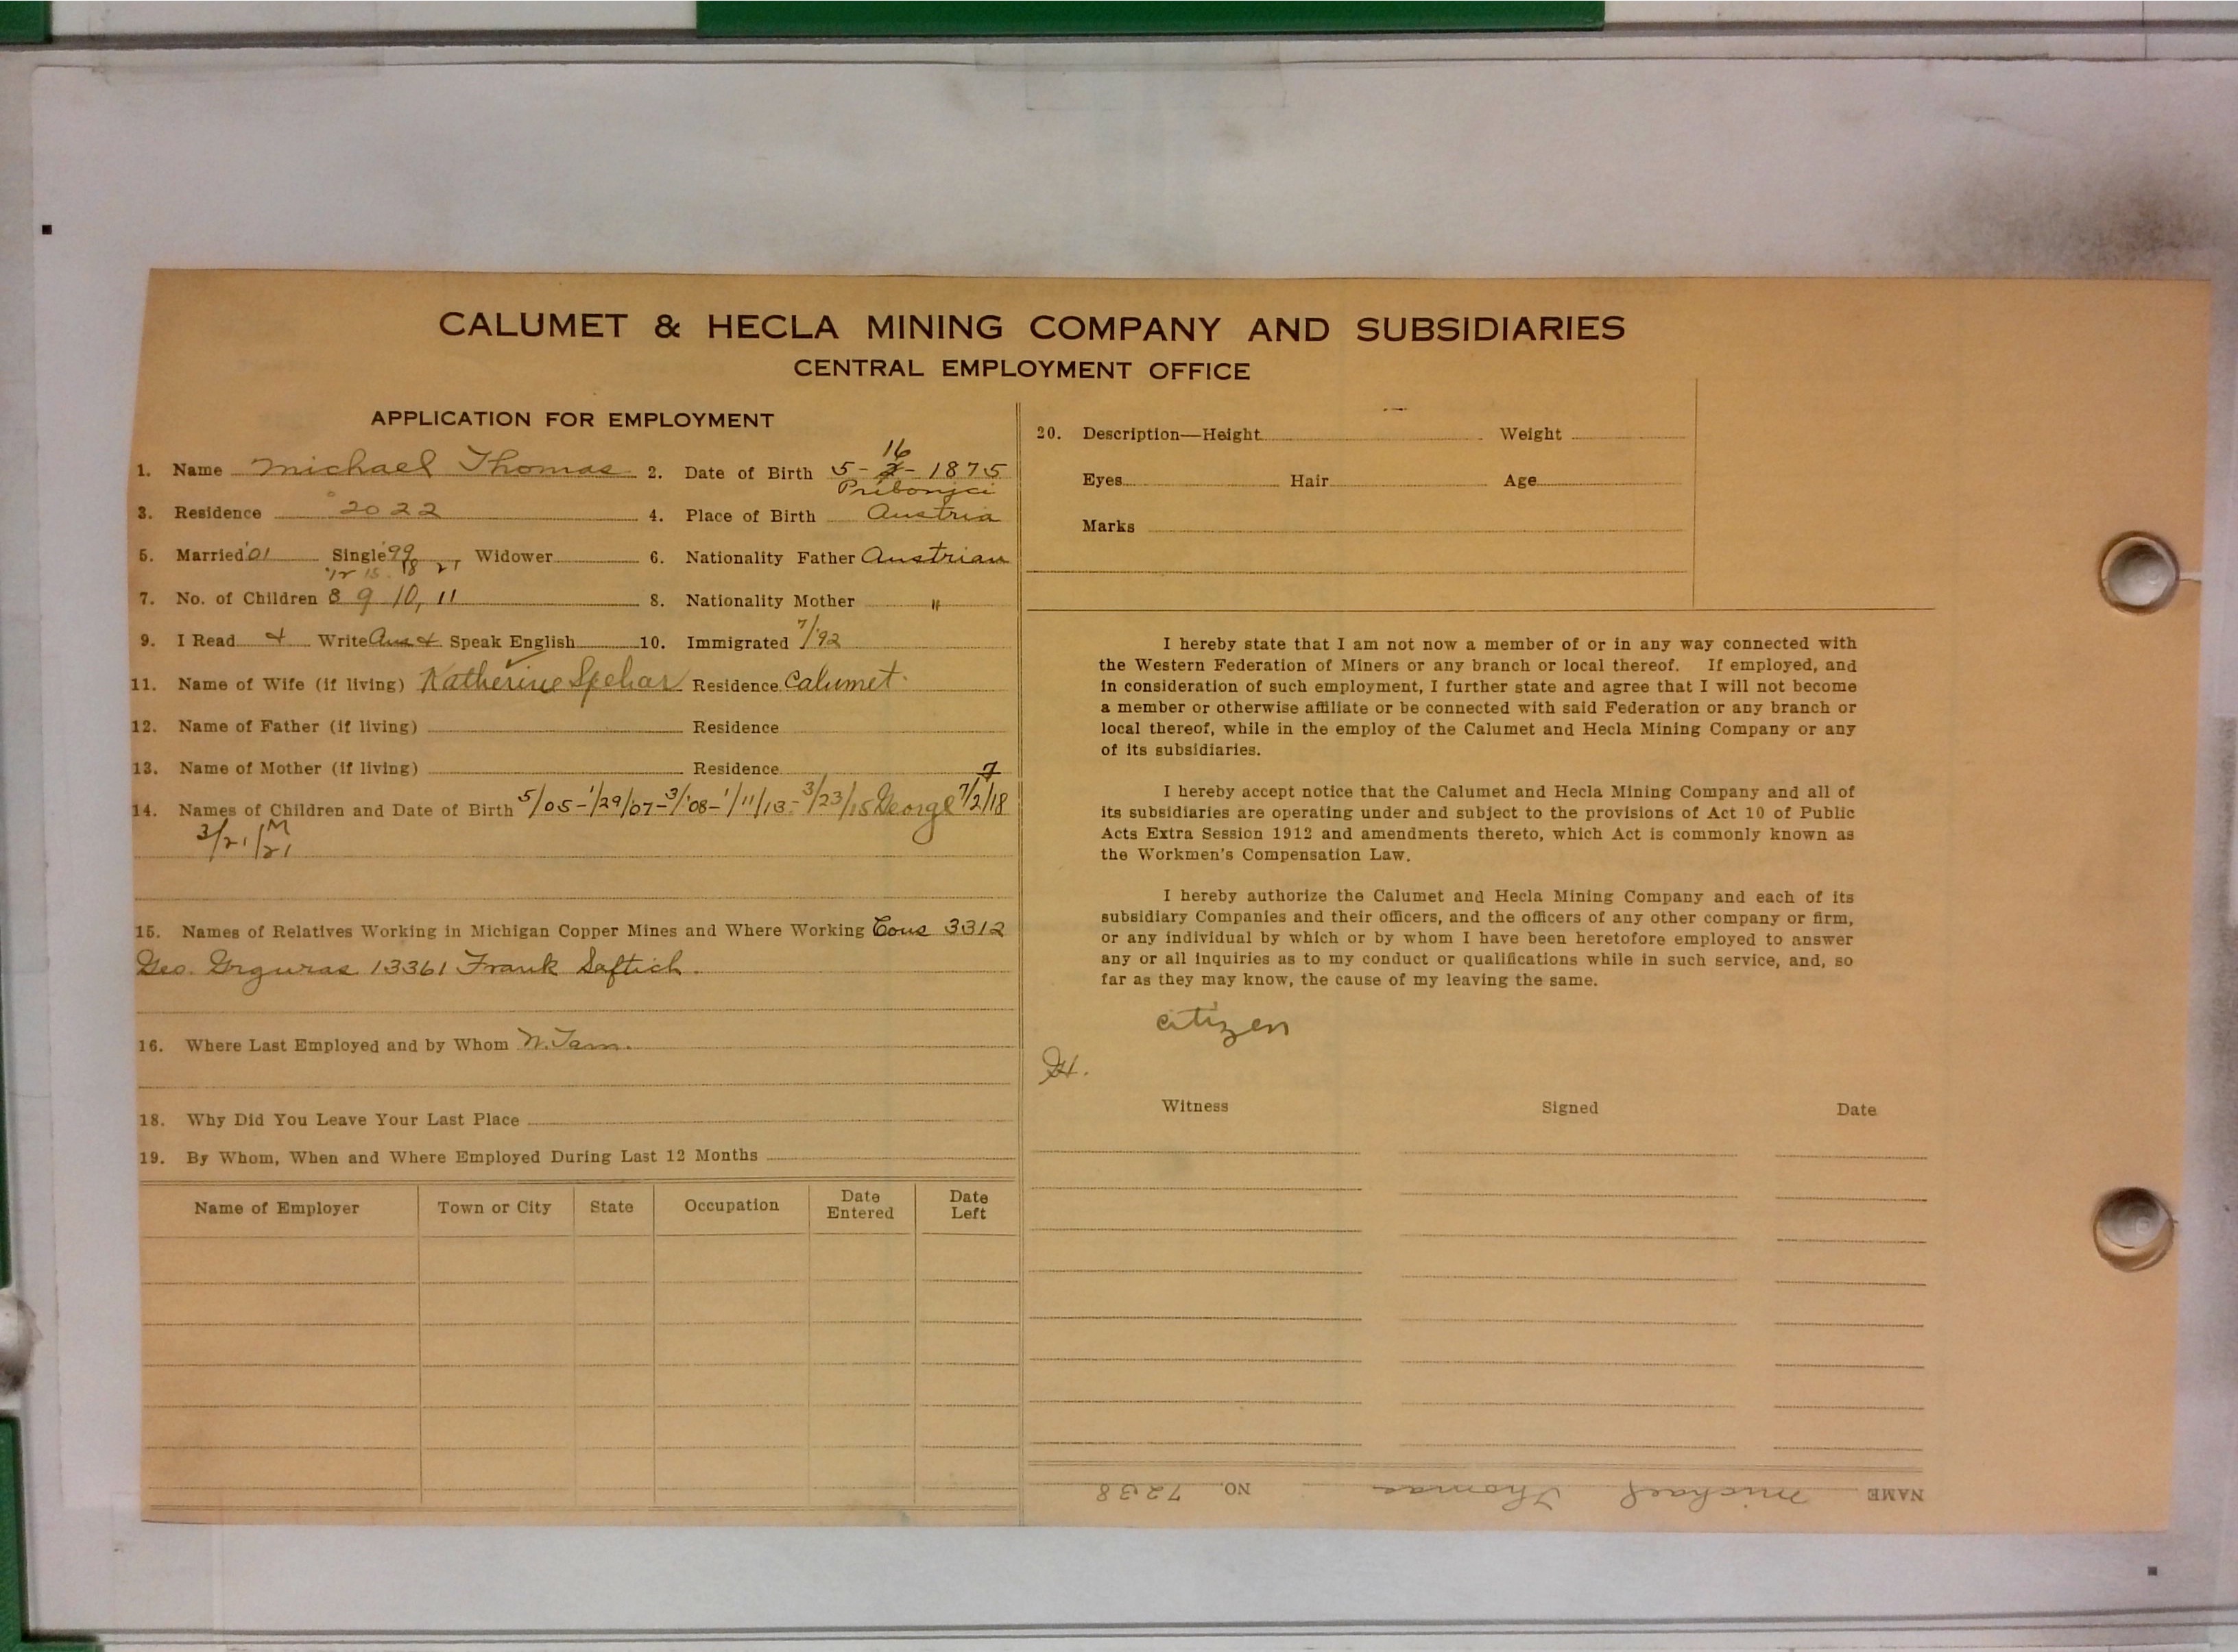 CALUMET & HECLA MINING COMPANY AND SUBSIDIARIES
CENTRAL EMPLOYMENT OFFICE
APPLICATION FOR EMPLOYMENT
16
1. Name Michael Thomas 2. Date of Birth 5-2-1875
Pribonjci
3. Residence 2022 4. Place of Birth Austria
5. Married '01 Single 99 Widower 6. Nationality Father Austrian
'12 15. 18 21
7. No. of Children 8 9 10, 11 8. Nationality Mother "
9. I Read & Write Aus & Speak English 10. Immigrated 7/'92
11. Name of Wife (if living) Katherine Spehar Residence Calumet.
12. Name of Father (if living) Residence
13. Name of Mother (if living) Residence
7
14. Names of Children and Date of Birth 5/05-1/29/07-3/'08-1/11/13-3/23/15 George 7/2/18
3/21/21 M
15. Names of Relatives Working in Michigan Copper Mines and Where Working Cous 3312
Geo. Grguras 13361 Frank Saftich.
16. Where Last Employed and by Whom N. Tam.
18. Why Did You Leave Your Last Place
19. By Whom, When and Where Employed During Last 12 Months
Name of Employer Town or City State Occupation Date Entered Date Left
20. Description—Height Weight
Eyes Hair Age
Marks
I hereby state that I am not now a member of or in any way connected with
the Western Federation of Miners or any branch or local thereof. If employed, and
in consideration of such employment, I further state and agree that I will not become
a member or otherwise affiliate or be connected with said Federation or any branch or
local thereof, while in the employ of the Calumet and Hecla Mining Company or any
of its subsidiaries.
I hereby accept notice that the Calumet and Hecla Mining Company and all of
its subsidiaries are operating under and subject to the provisions of Act 10 of Public
Acts Extra Session 1912 and amendments thereto, which Act is commonly known as
the Workmen's Compensation Law.
I hereby authorize the Calumet and Hecla Mining Company and each of its
subsidiary Companies and their officers, and the officers of any other company or firm,
or any individual by which or by whom I have been heretofore employed to answer
any or all inquiries as to my conduct or qualifications while in such service, and, so
far as they may know, the cause of my leaving the same.
citizen
Witness Signed Date
NAME Michael Thomas NO. 7238